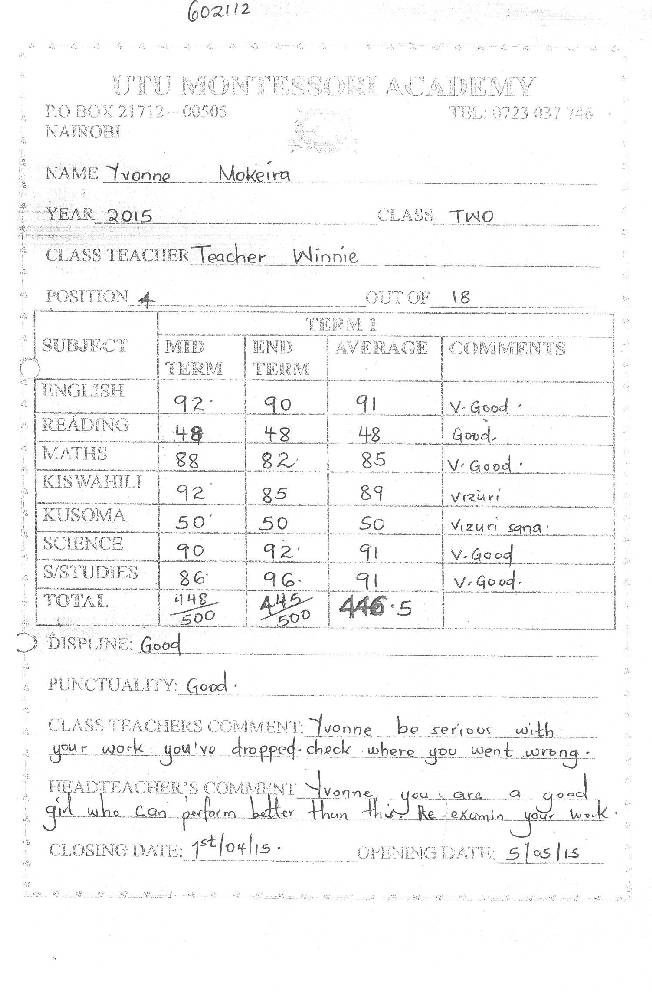 602112
UTU MONTESSORI ACADEMY
P.O BOX 21712 – 00505 TEL: 0723 037 746
NAIROBI
NAME Yvonne Mokeira
YEAR 2015 CLASS TWO
CLASS TEACHER Teacher Winnie
POSITION 4 OUT OF 18
TERM 1
SUBJECT MID TERM END TERM AVERAGE COMMENTS
ENGLISH 92 90 91 V. Good.
READING 48 48 48 Good.
MATHS 88 82 85 V. Good.
KISWAHILI 92 85 89 Vizuri
KUSOMA 50 50 50 Vizuri sana.
SCIENCE 90 92 91 V. Good
S/STUDIES 86 96 91 V. Good.
TOTAL 448/500 445/500 446.5
DISPLINE: Good
PUNCTUALITY: Good.
CLASS TEACHERS COMMENT: Yvonne be serious with
your work you've dropped. check where you went wrong.
HEADTEACHER'S COMMENT Yvonne, you are a good
girl who can perform better than this. Re examin your work.
CLOSING DATE: 1st/04/15. OPENING DATE: 5/05/15